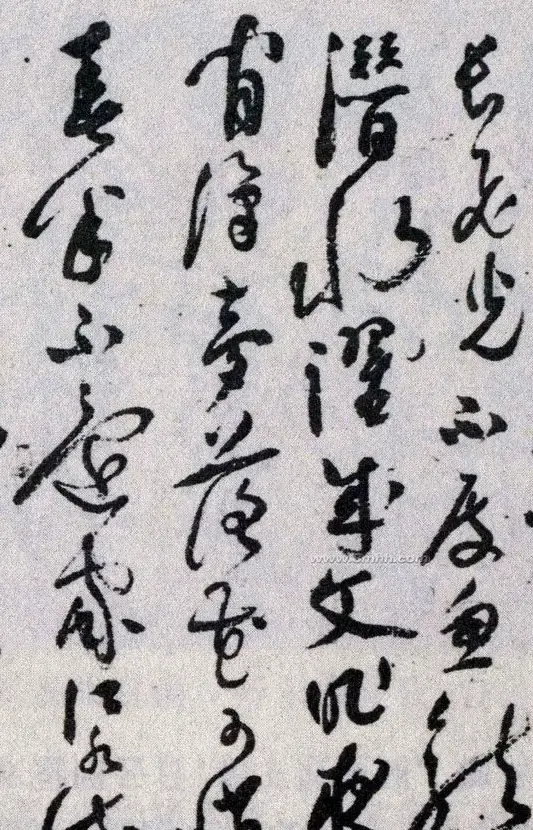 長飛光不度魚龍
潛躍水躍成文昨夜
宵潭夢落花可憐
春半不還家江水流
www.smhh.com